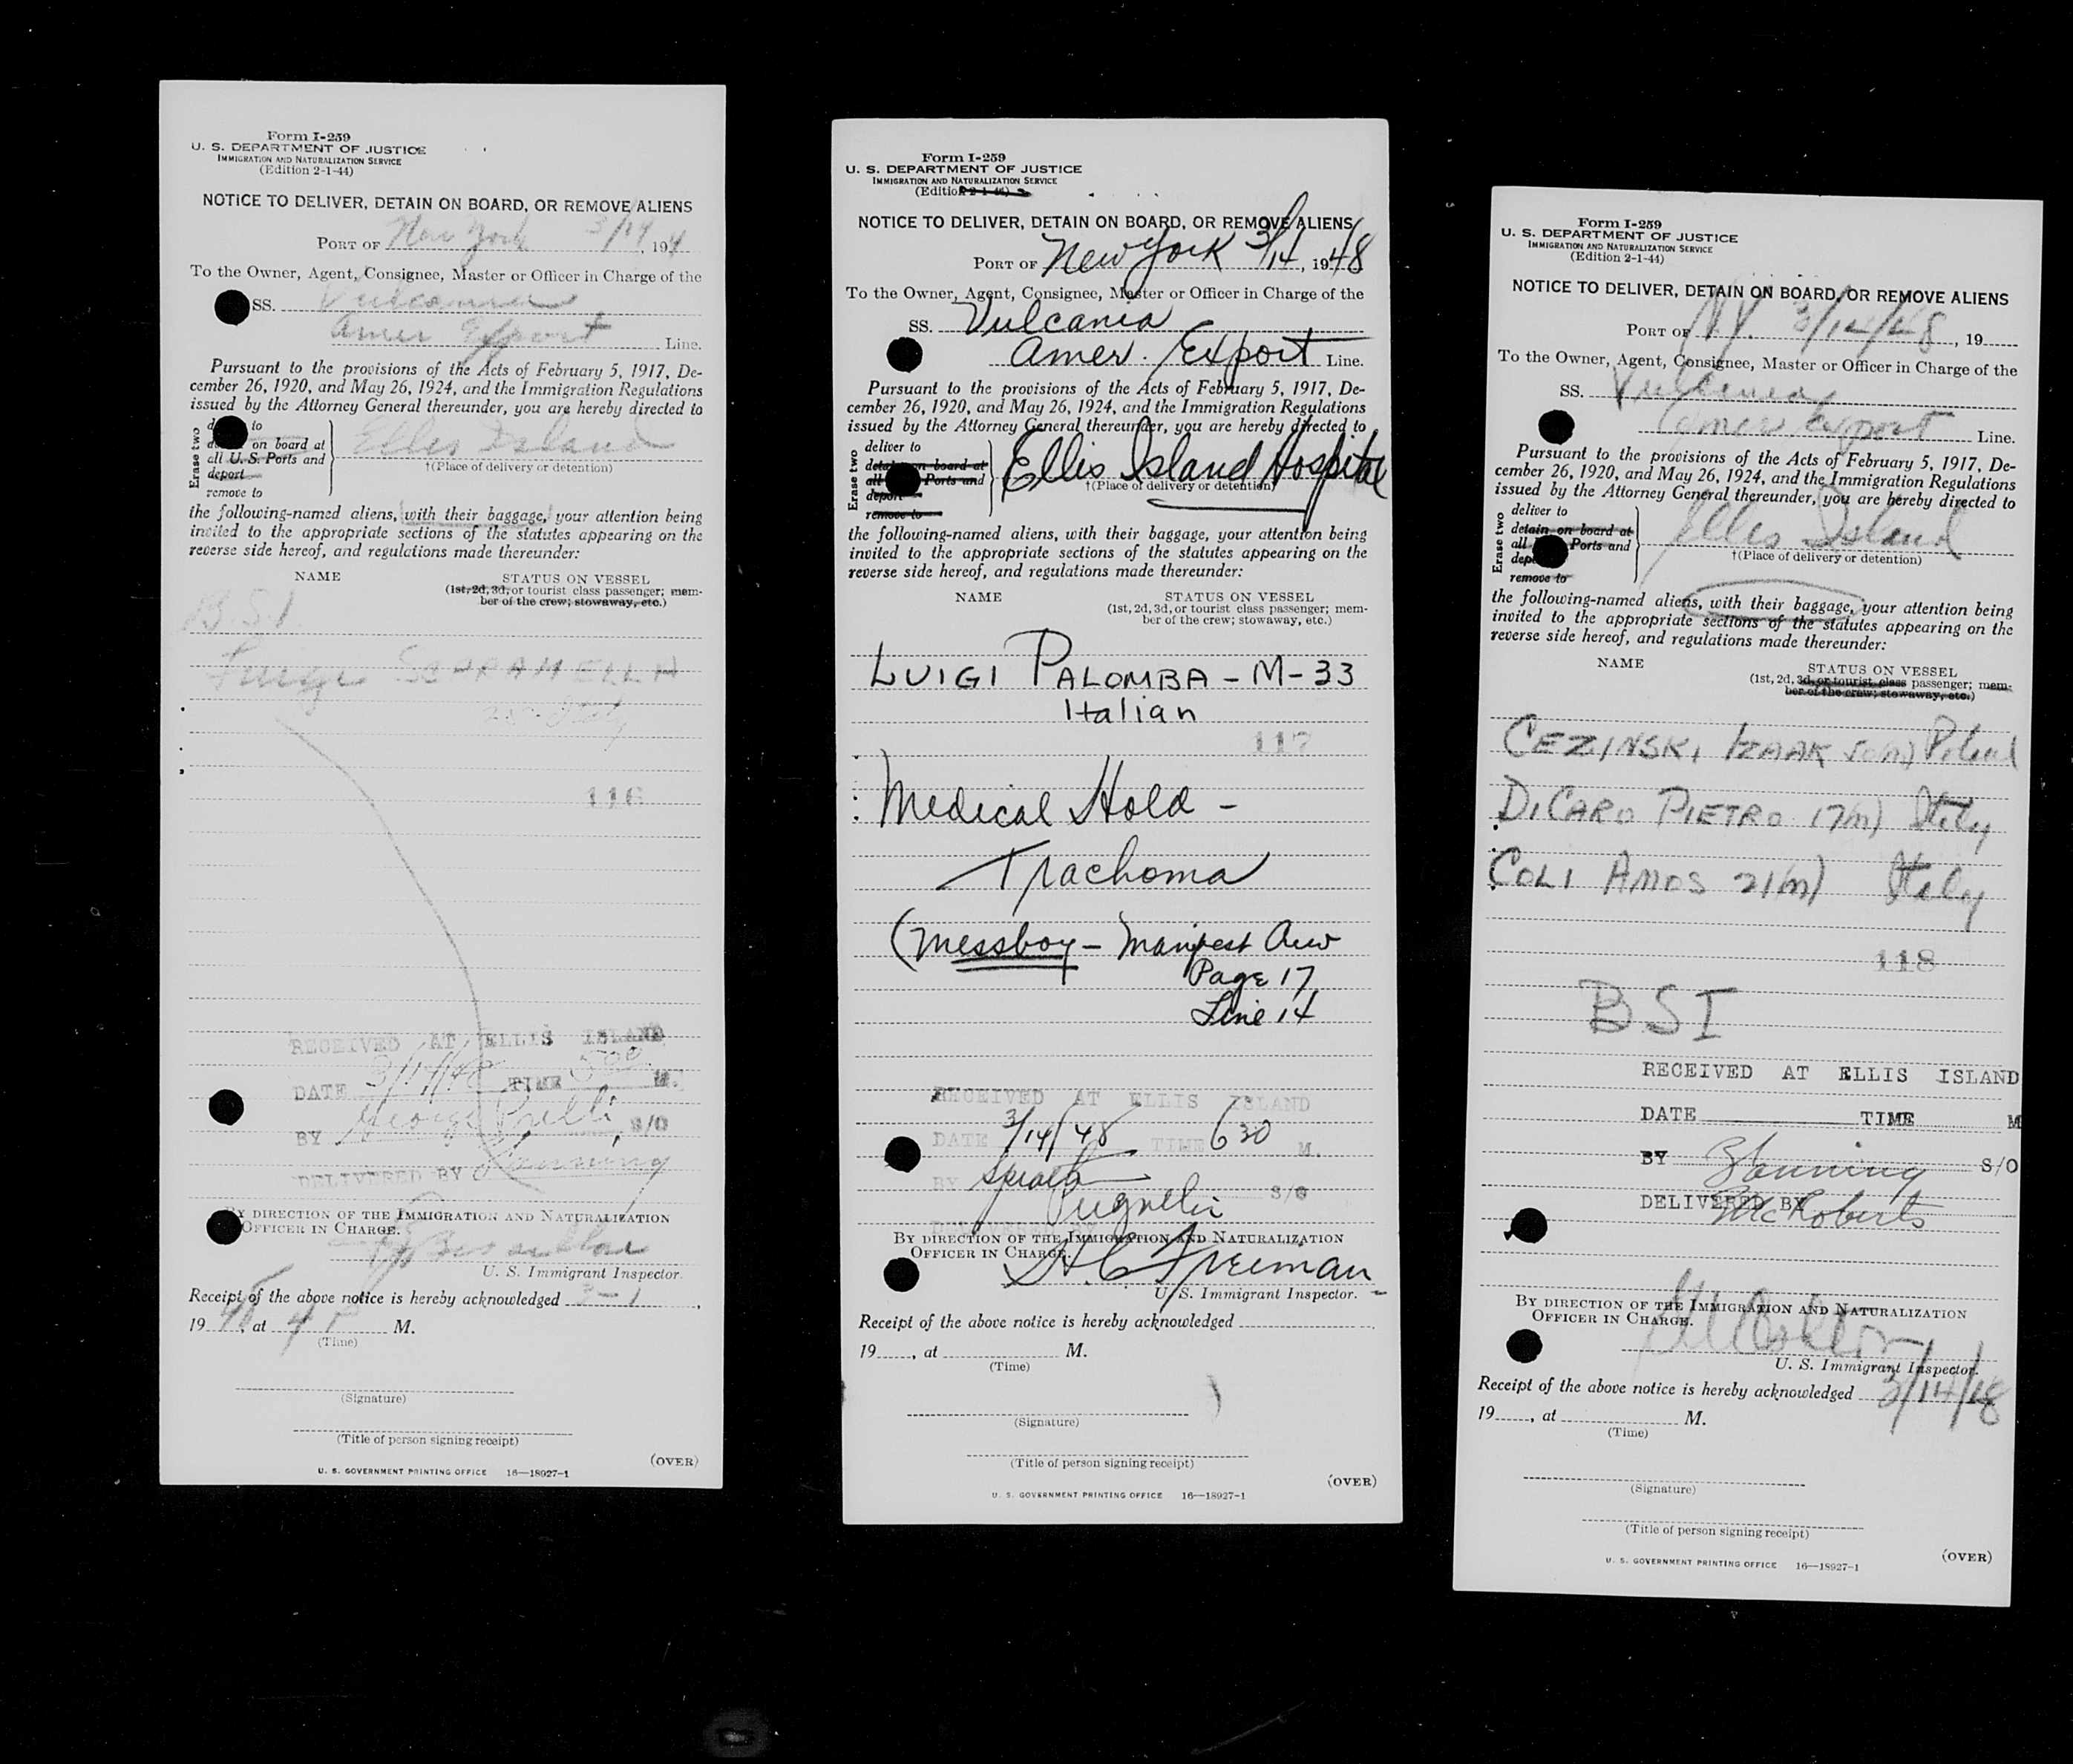 Form I-259
U. S. DEPARTMENT OF JUSTICE
IMMIGRATION AND NATURALIZATION SERVICE
(Edition 2-1-44)
NOTICE TO DELIVER, DETAIN ON BOARD, OR REMOVE ALIENS
PORT OF New York 3/14, 194
To the Owner, Agent, Consignee, Master or Officer in Charge of the
SS. Vulcania
Amer Export Line.
Pursuant to the provisions of the Acts of February 5, 1917, De-
cember 26, 1920, and May 26, 1924, and the Immigration Regulations
issued by the Attorney General thereunder, you are hereby directed to
Erase two
to
on board at
all U. S. Ports and
deport
remove to
Ellis Island
†(Place of delivery or detention)
the following-named aliens, with their baggage, your attention being
invited to the appropriate sections of the statutes appearing on the
reverse side hereof, and regulations made thereunder:
NAME STATUS ON VESSEL
(1st, 2d, 3d, or tourist class passenger; mem-
ber of the crew; stowaway, etc.)
B.S.I.
Luigi SCARAMELLA
Italy
116
RECEIVED AT ELLIS ISLAND
DATE 3/14/48 TIME 500 M.
BY George S/O
DELIVERED BY
BY DIRECTION OF THE IMMIGRATION AND NATURALIZATION
OFFICER IN CHARGE.
U. S. Immigrant Inspector.
Receipt of the above notice is hereby acknowledged
19 48, at 4 P M.
(Time)
(Signature)
(Title of person signing receipt)
(OVER)
U. S. GOVERNMENT PRINTING OFFICE 16—18927-1
Form I-259
U. S. DEPARTMENT OF JUSTICE
IMMIGRATION AND NATURALIZATION SERVICE
(Edition 2-1-44)
NOTICE TO DELIVER, DETAIN ON BOARD, OR REMOVE ALIENS
PORT OF New York 3/14, 1948
To the Owner, Agent, Consignee, Master or Officer in Charge of the
SS. Vulcania
Amer. Export Line.
Pursuant to the provisions of the Acts of February 5, 1917, De-
cember 26, 1920, and May 26, 1924, and the Immigration Regulations
issued by the Attorney General thereunder, you are hereby directed to
Erase two
deliver to
detain on board at
all Ports and
deport
remove to
Ellis Island Hospital
†(Place of delivery or detention)
the following-named aliens, with their baggage, your attention being
invited to the appropriate sections of the statutes appearing on the
reverse side hereof, and regulations made thereunder:
NAME STATUS ON VESSEL
(1st, 2d, 3d, or tourist class passenger; mem-
ber of the crew; stowaway, etc.)
LUIGI PALOMBA - M-33
Italian
117
Medical Hold -
Trachoma
(Messboy - Manifest
Page 17
Line 14
RECEIVED AT ELLIS ISLAND
DATE 3/14/48 TIME 630 M.
BY S/O
DELIVERED BY
BY DIRECTION OF THE IMMIGRATION AND NATURALIZATION
OFFICER IN CHARGE.
H C Freiman
U. S. Immigrant Inspector.
Receipt of the above notice is hereby acknowledged
19 , at M.
(Time)
(Signature)
(Title of person signing receipt)
(OVER)
U. S. GOVERNMENT PRINTING OFFICE 16—18927-1
Form I-259
U. S. DEPARTMENT OF JUSTICE
IMMIGRATION AND NATURALIZATION SERVICE
(Edition 2-1-44)
NOTICE TO DELIVER, DETAIN ON BOARD, OR REMOVE ALIENS
PORT OF N.Y. 3/14/48, 19
To the Owner, Agent, Consignee, Master or Officer in Charge of the
SS. Vulcania
Amer Export Line.
Pursuant to the provisions of the Acts of February 5, 1917, De-
cember 26, 1920, and May 26, 1924, and the Immigration Regulations
issued by the Attorney General thereunder, you are hereby directed to
Erase two
deliver to
detain on board at
all Ports and
remove to
Ellis Island
†(Place of delivery or detention)
the following-named aliens, with their baggage, your attention being
invited to the appropriate sections of the statutes appearing on the
reverse side hereof, and regulations made thereunder:
NAME STATUS ON VESSEL
(1st, 2d, 3d, or tourist class passenger; mem-
ber of the crew; stowaway, etc.)
CEZINSKI, IZAAK 50(m) Poland
DICARO PIETRO 17(m) Italy
COLI AMOS 21(m) Italy
118
BSI
RECEIVED AT ELLIS ISLAND
DATE TIME M
BY S/O
DELIVERED BY McRoberts
BY DIRECTION OF THE IMMIGRATION AND NATURALIZATION
OFFICER IN CHARGE.
U. S. Immigrant Inspector.
Receipt of the above notice is hereby acknowledged 3/14/48
19 , at M.
(Time)
(Signature)
(Title of person signing receipt)
(OVER)
U. S. GOVERNMENT PRINTING OFFICE 16—18927-1